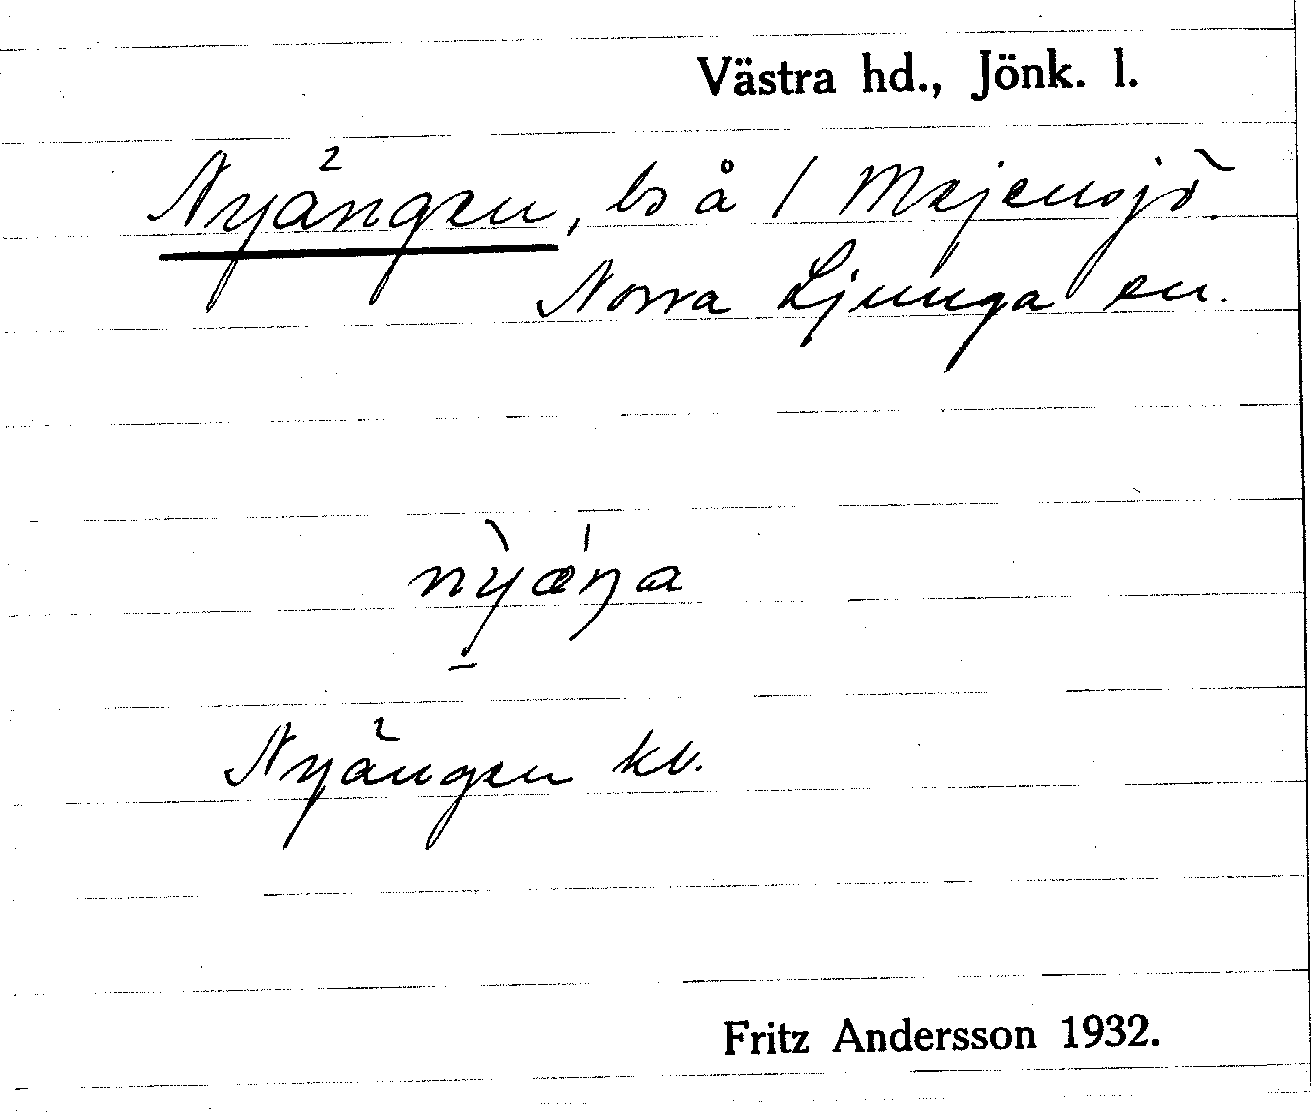 Västra hd., Jönk. l.
Nyängen, ls å 1 Mejensjö.
Norra Ljunga sn.
nỳæ´ŋa
Nyängen kv.
Fritz Andersson 1932.